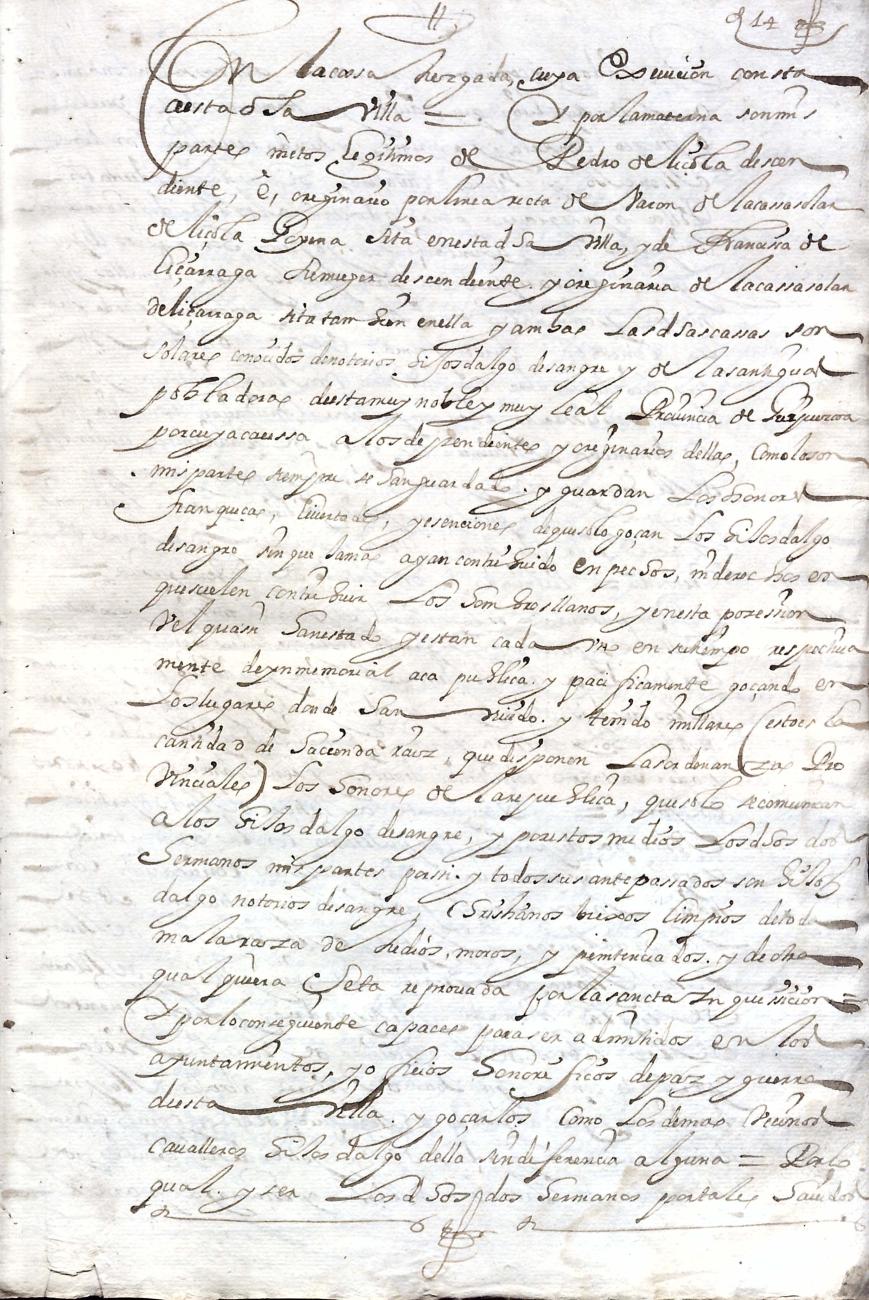 14
En la cassa Juzgada, cuya Execucion consta
a esta dha Villa = Y por la materna son mis
partes nietos legitimos de Pedro de liçola descen
diente, è, originario por linea recta de Varon de la cassa solar
de liçola sita en esta dha Villa, y de Francisca de
liçarraga su muger descendiente. y originaria de la cassa solar
de liçarraga sita tambien en ella y ambas Las dhas cassas son
solares conoçidos de notorios hijosdalgo de sangre y de las antiguas
pobladoras de esta muy noble y muy leal Provincia de Guipuzcoa
por cuya caussa a los dependientes y originarios dellas, Como lo son
mis partes siempre se han guardado. y guardan Los honores
franqueças, livertades, y esenciones de que solo goçan Los hijosdalgo
de sangre sin que Jamas ayan contribuido en pechos, ni derechos en
que suelen contribuir Los hombres llanos, y en esta possession
Vel quasi han estado y estan cada uno en su tiempo respectiva
mente de ynmemorial aca publica. y pacificamente goçando en
Los lugares donde han vivido. y tenido millares (esto es la
cantidad de hacienda raiz, que disponen Las ordenanzas Pro
Vinciales) Los honores de la republica, que solo se comunican
a los hijos dalgo de sangre, y por estos medios Los dhos dos
hermanos mis partes por si. y todos sus antepassados son hijos
dalgo notorios de sangre, Cristianos viejos limpios de toda
mala raza de Judios, moros, y penitenciados. y de otra
qualquiera Seta reprovada por la sancta Inquisicion =
Y por lo consiguiente capaces para ser admitidos en los
ayuntamientos, y oficios honorificos de paz y guerra
de esta Villa. y goçarlos Como Los demas Vecinos
cavalleros hijos dalgo della sin diferencia alguna = Por lo
qual. y ser Los dhos dos hermanos por tales havidos